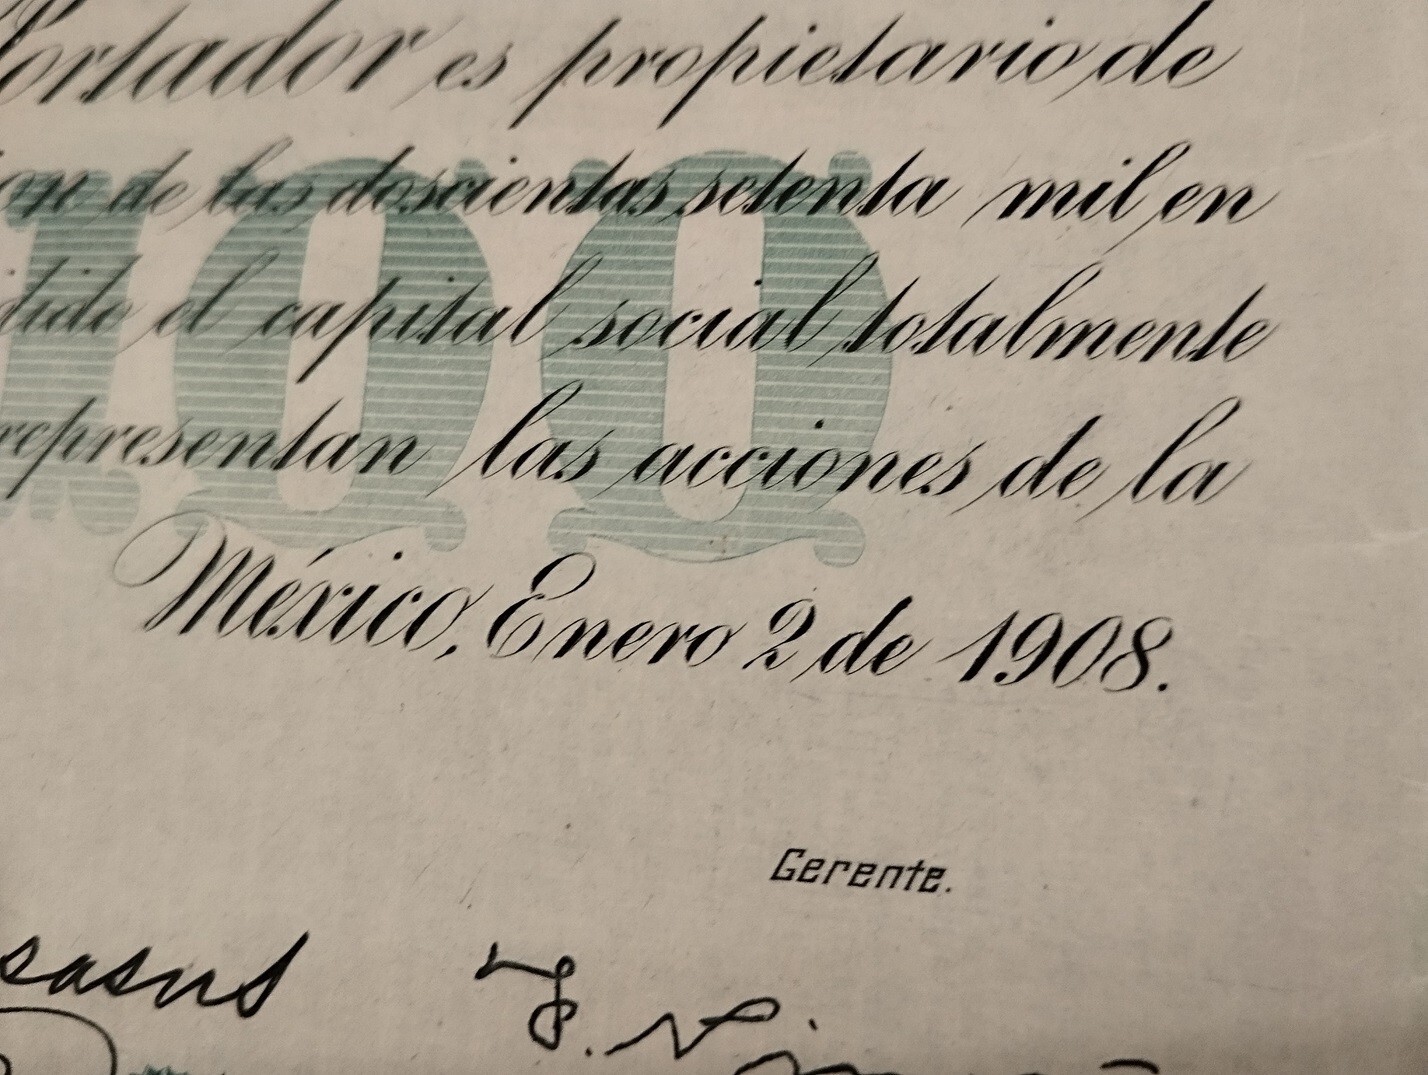 Portador es propietario de
on de las doscientas setenta mil en
dido el capital social totalmente
representan las acciones de la
100
México, Enero 2 de 1908.
Gerente.
sasus